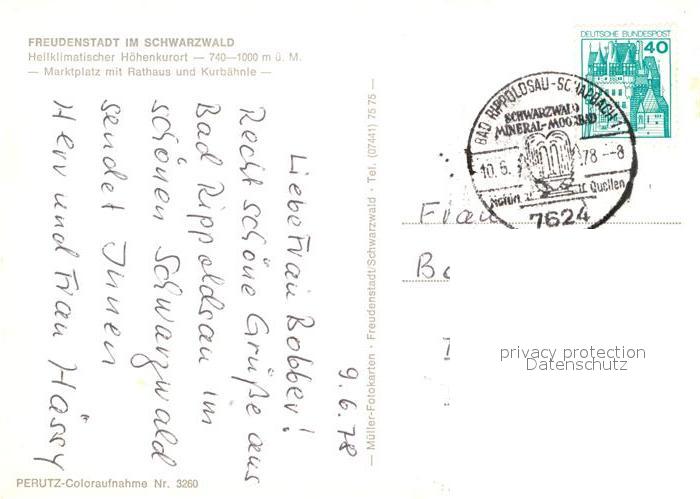 FREUDENSTADT IM SCHWARZWALD
Heilklimatischer Höhenkurort — 740—1000 m ü. M.
— Marktplatz mit Rathaus und Kurbähnle —
9.6.78
Liebe Frau Bobber!
Recht schöne Grüße aus
Bad Rippoldsau im
schönen Schwarzwald
sendet Ihnen
Herr und Frau Hässy
PERUTZ-Coloraufnahme Nr. 3260
— Müller-Fotokarten · Freudenstadt/Schwarzwald · Tel. (07441) 7575 —
DEUTSCHE BUNDESPOST
40
BAD RIPPOLDSAU-SCHAPBACH 1
SCHWARZWALD
MINERAL-MOORBAD
10.6. 78 --8
Quellen
7624
Frau
privacy protection
Datenschutz